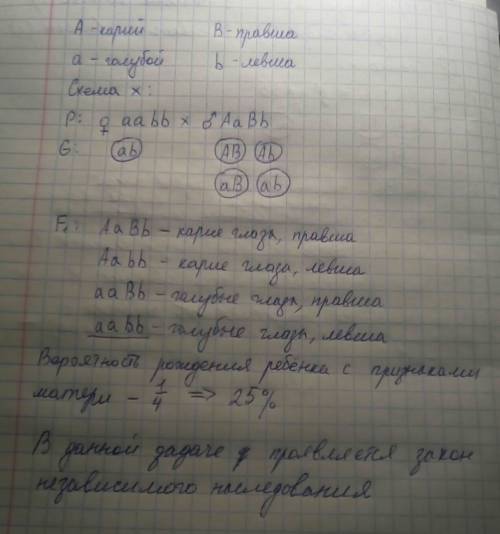 A - карий B - правша
a - голубой b - левша
Схема x:
P: ♀ aabb x ♂ AaBb
G: ab AB Ab
aB ab
F₁: AaBb – карие глаза, правша
Aabb – карие глаза, левша
aaBb – голубые глаза, правша
aaBb – голубые глазы, левша
Вероятность рождения ребёнка с признаками
матери – 1/4 => 25%
В данной задаче проявляется закон
независимого наследования